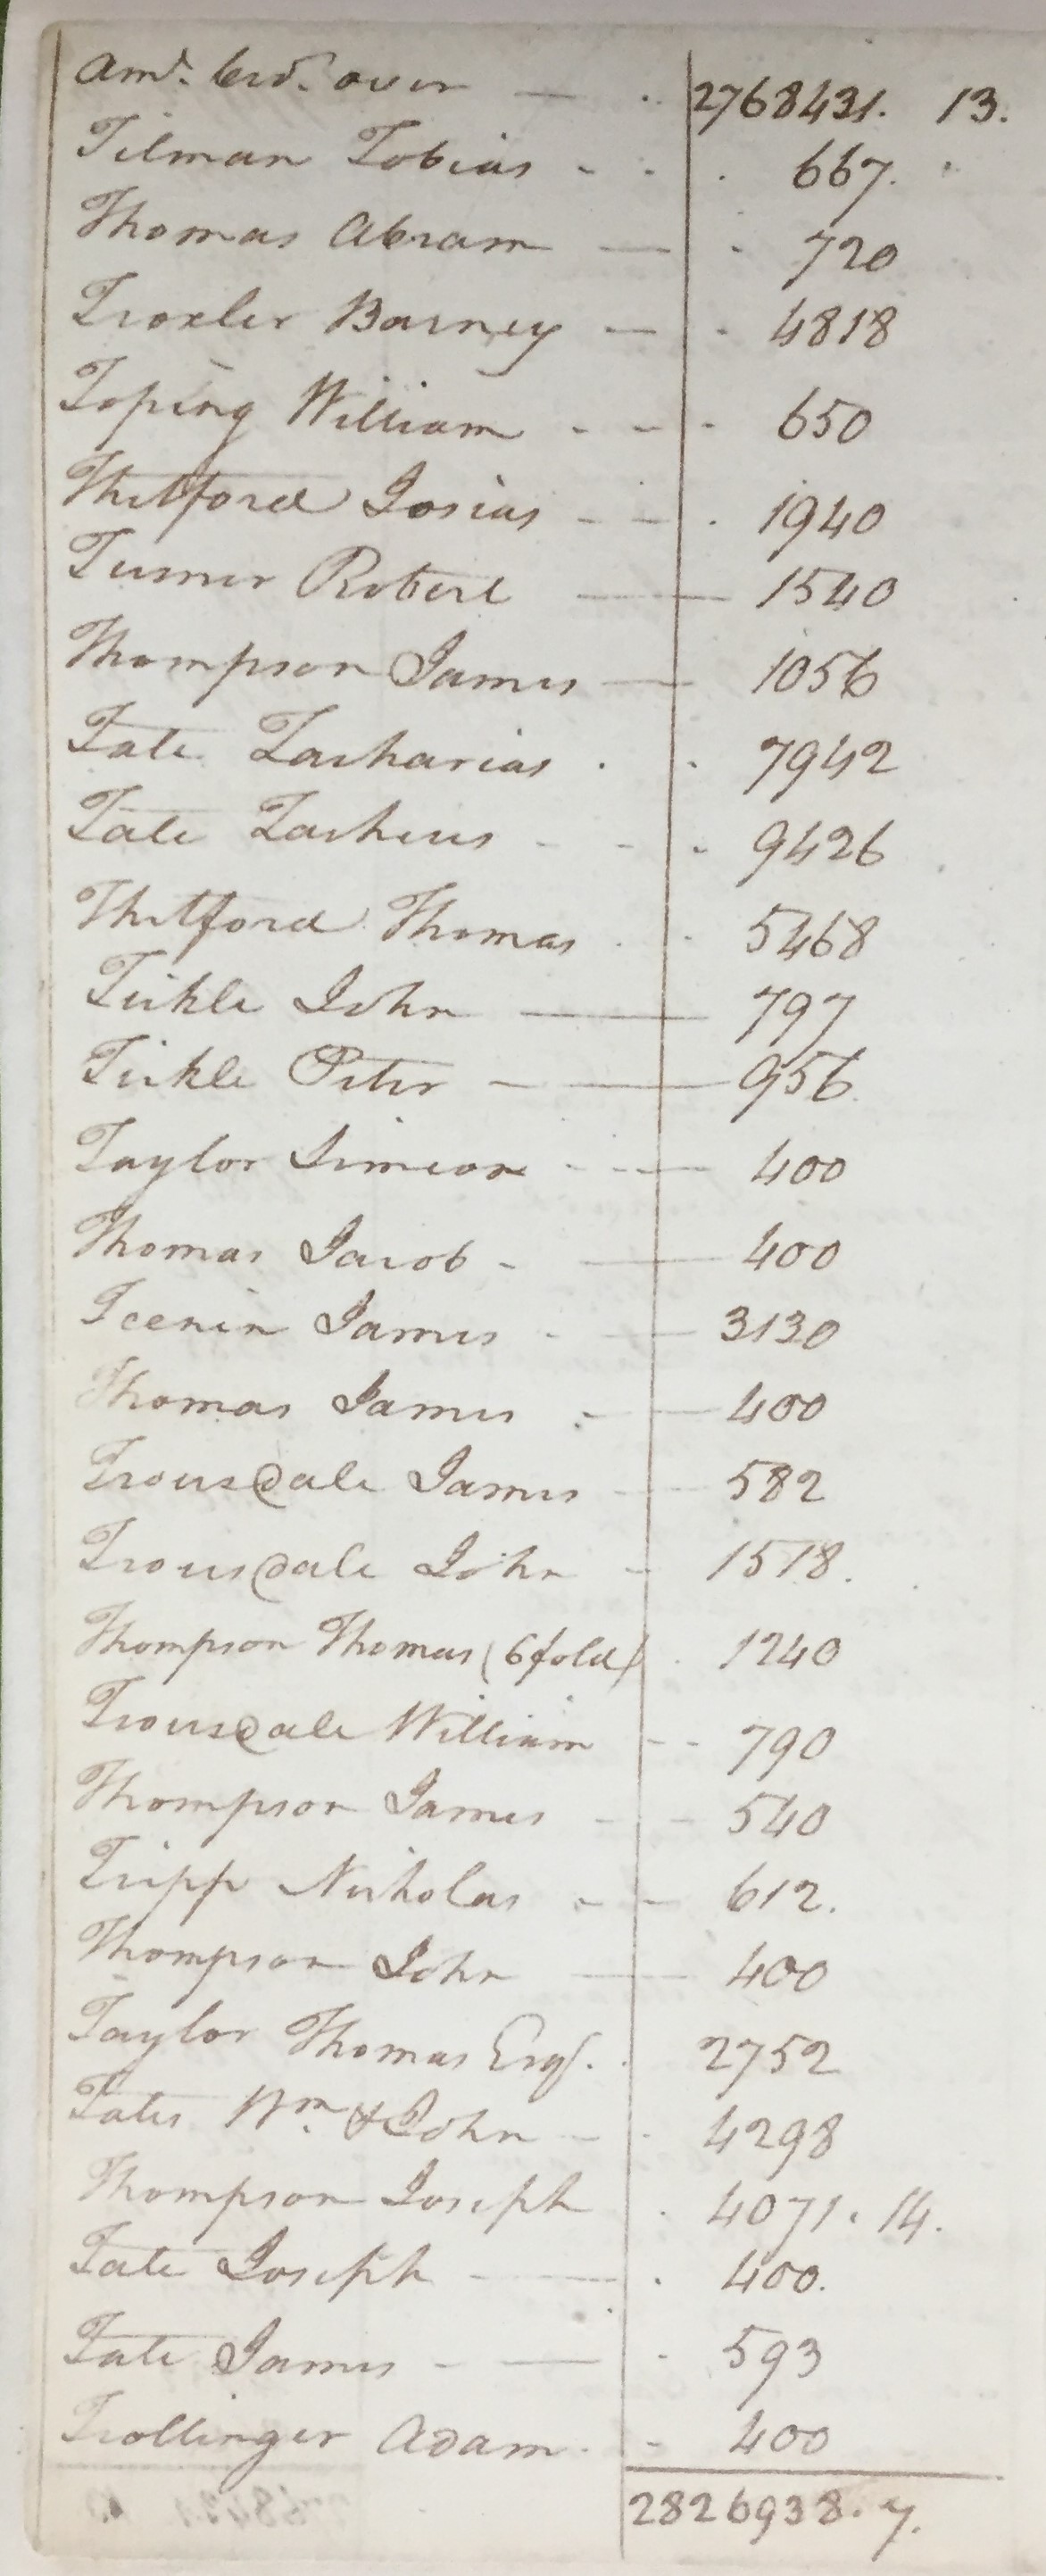 Amt. brd. over — . 2768431. 13.
Tilman Tobias - . . 667.
Thomas Abram — . 720
Troxler Barney — . 4818
Toping William - - - 650
Thetford Josias - - . 1940
Turner Robert — 1540
Thompson James — 1056
Tate Zacharias . . 7942
Tate Zacheus - - . 9426
Thetford Thomas . . 5468
Tickle John — 797
Tickle Peter - — 956
Taylor Simeon - — 400
Thomas Jacob - — 400
Teenin James - — 3130
Thomas James - — 400
Trousdale James — 582
Trousdale John - 1518.
Thompson Thomas (6 fold) . 1240
Trousdale William - - 790
Thompson James - - 540
Tripp Nicholas - - 612.
Thompson John — 400
Taylor Thomas Esqr. . 2752
Tates Wm. & John - . 4298
Thompson Joseph . 4071. 14.
Tate Joseph - — . 400.
Tate James - — . 593
Trollinger Adam . - 400
2826938. 7.